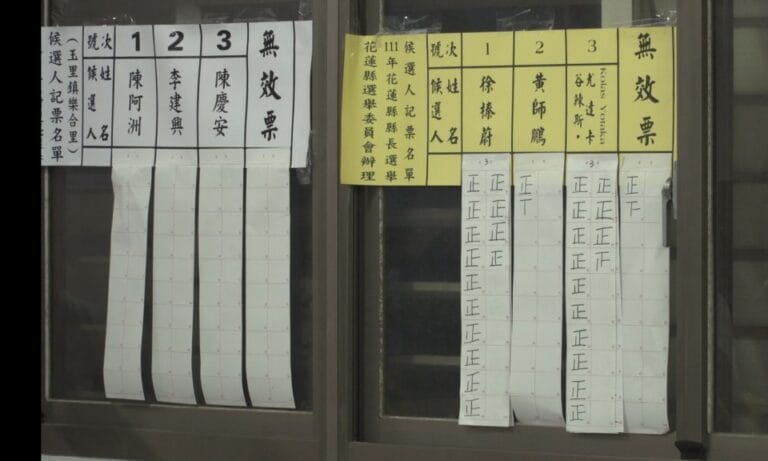 候選人記票名單
（玉里鎮樂合里）
號次
候選人姓名
1
陳阿洲
2
李建興
3
陳慶安
無效票
候選人記票名單
111年花蓮縣縣長選舉
花蓮縣選舉委員會辦理
號次
候選人姓名
1
徐榛蔚
正正正正正正正正正正
正正正正
2
黃師鵬
正丅
3
Kolas Yotaka
谷辣斯．尤達卡
正正正正正正正正正正
正正正
無效票
正下